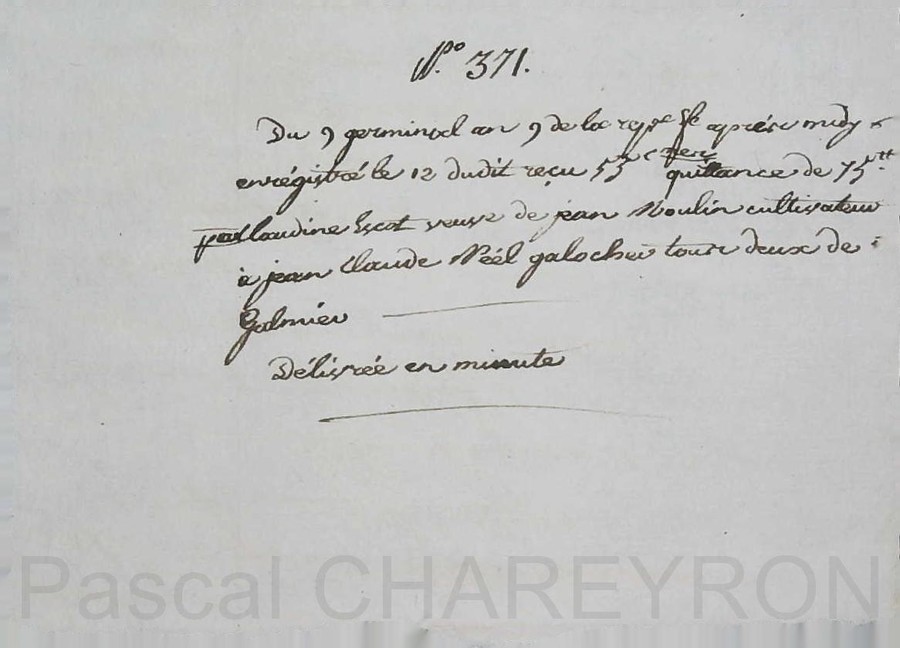 N.º 371.
Du 9 germinal an 9 de la repe fe après midy
enrégistré le 12 dudit reçu 55 c mes quittance de 75 tt
par Claudine Escot veuve de jean Moulin cultivateur
à jean Claude Néél galocher tous deux de
Galmier
Délivrée en minute
Pascal CHAREYRON